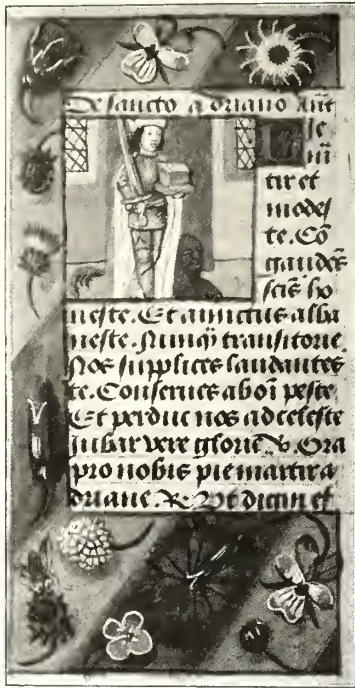 De sancto adriano Ant̄
le
tir et
modes
te. Cō
gaudēs
scīs ho
neste. Et amictus alba
ueste. Nunq̄ transitorie
Nos supplices laudantes
te. Conserues ab oī peste
Et perduc nos ad celeste
Jubar vere glorie. V. Ora
pro nobis pie martir a
driane. R. Vt digni ef